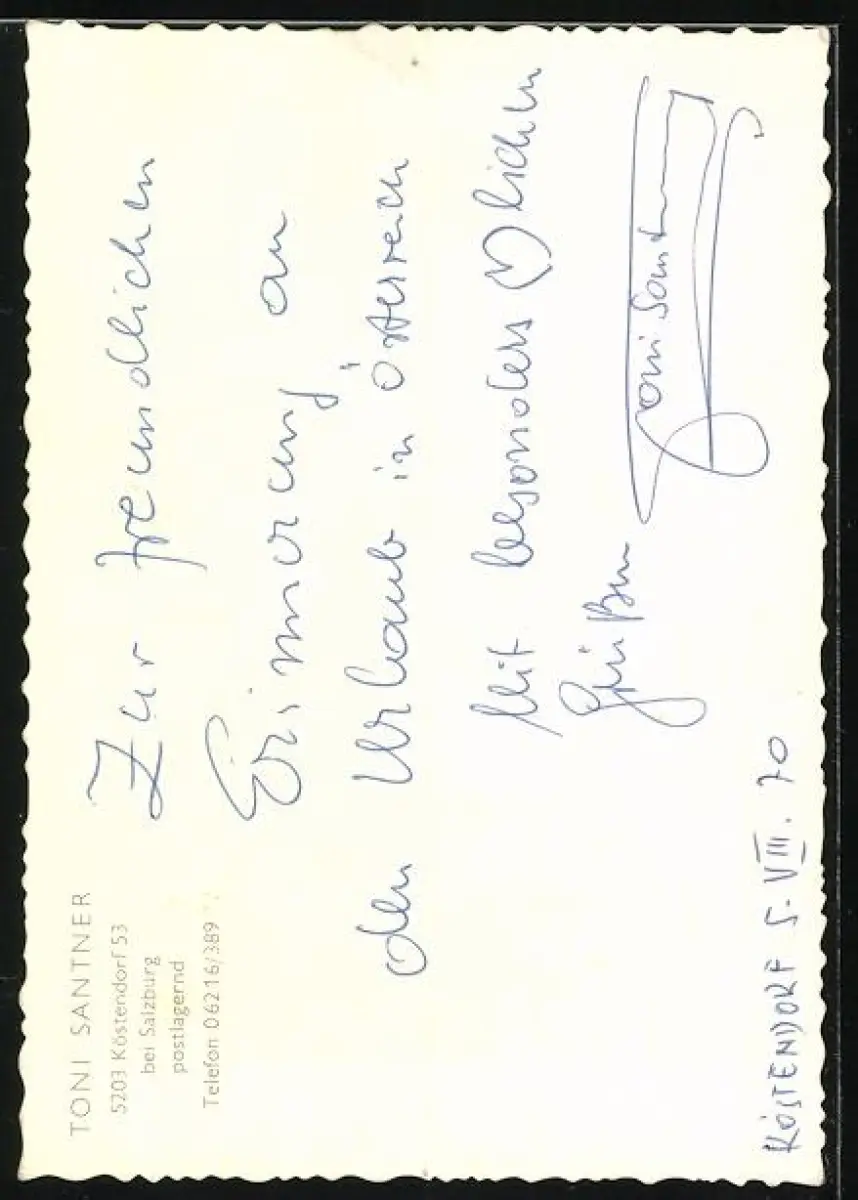 TONI SANTNER
5203 Köstendorf 53
bei Salzburg
postlagernd
Telefon 06216/389
Zur freundlichen
Erinnerung an
den Urlaub in Österreich
Mit besonders ♡lichen
Grüßen Toni Santner
KÖSTENDORF 5. VIII. 70